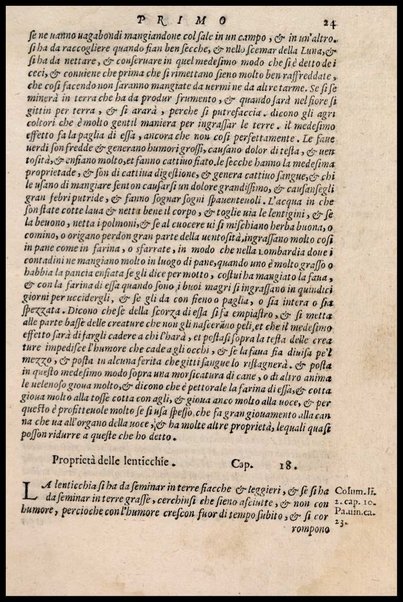 PRIMO 24
se ne vanno uagabondi mangiandone col sale in un campo, & in un'altro.
si ha da raccogliere quando fian ben secche, & nello scemar della Luna, &
si ha da nettare, & conseruare in quel medesimo modo che si è detto de i
ceci, & conuiene che prima che si rimettano sieno molto ben raffreddate,
che cosi facendo non saranno mangiate da uermi ne da altre tarme. Se si se
minerà in terra che ha da produr frumento, & quando sarà nel fiore si
gittin per terra, & si ararà, perche si putrefaccia. dicono gli agri
coltori che è molto gentil maniera per ingrassar le terre. il medesimo
effetto fa la paglia di essa, ancora che non cosi perfettamente. Le faue
uerdi son fredde & generano humori grossi, causano dolor di testa, & uen
tosità, & enfiano molto, et fan cattiuo fiato, le secche hanno la medesima
proprietade, & son di cattiua digestione, & genera cattiuo sangue, & chi
le usano di mangiare senton causarsi un dolore grandissimo, & causansegli
gran febri putride, & fanno sognar sogni spauenteuoli. L'acqua in che
son state cotte laua & netta bene il corpo, & toglie uia le lentigini, & se
la beuono, netta i polmoni, & se al cuocere ui si mischiano herba buona, o
comino, o origano perdon gran parte della uentosità, ingrassano molto cosi
in pane come in farina, o sfarrate, in modo che nella Lombardia doue i
contadini ne mangiano molto in luogo di pane, quando uno è molto grasso o
habbia la pancia enfiata se gli dice per motto, costui ha mangiato la faua,
& con la farina di essa quando sono, i buoi magri si ingrassano in quindici
giorni per ucciderli, & se gli da con fieno o paglia, o sia intera o sia
spezzata. Dicono che se della scorza di essa si fa empiastro, & si metta
alle parte basse delle creature che non gli nasceranno peli, et che il medesimo
effetto sarà di fargli cadere a chi l'harà, et postasi sopra la testa delle crea
ture impedisce l'humore che cade a gli occhi, & se la faua fia diuisa pel
mezzo, & posta in alcuna ferita che gitti sangue lo ristagnerà. & posta
in questo medesimo modo sopra una morsicatura di cane, o di altro anima
le uelenoso gioua molto, & dicono che è pettorale la farina di essa, & cotta
gioua molto alla tosse cotta con agli, & gioua anco molto alla uoce, & per
questo è profitteuole molto se si usa spesso. che fa gran giouamento alla can
na che ua all'organo della uoce, & ha molte altre proprietà, le quali quasi
posson ridurre a queste che ho detto.
Proprietà delle lenticchie. Cap. 18.
LA lenticchia si ha da seminar in terre fiacche & leggieri, & se si ha
da seminar in terre grasse, cerchinsi che sieno asciutte, & non con
humore, percioche con l'humore crescon fuor di tempo subito, & si cor
rompono
Colum. li.
2. cap. 10.
Pau.in.ca.
23.